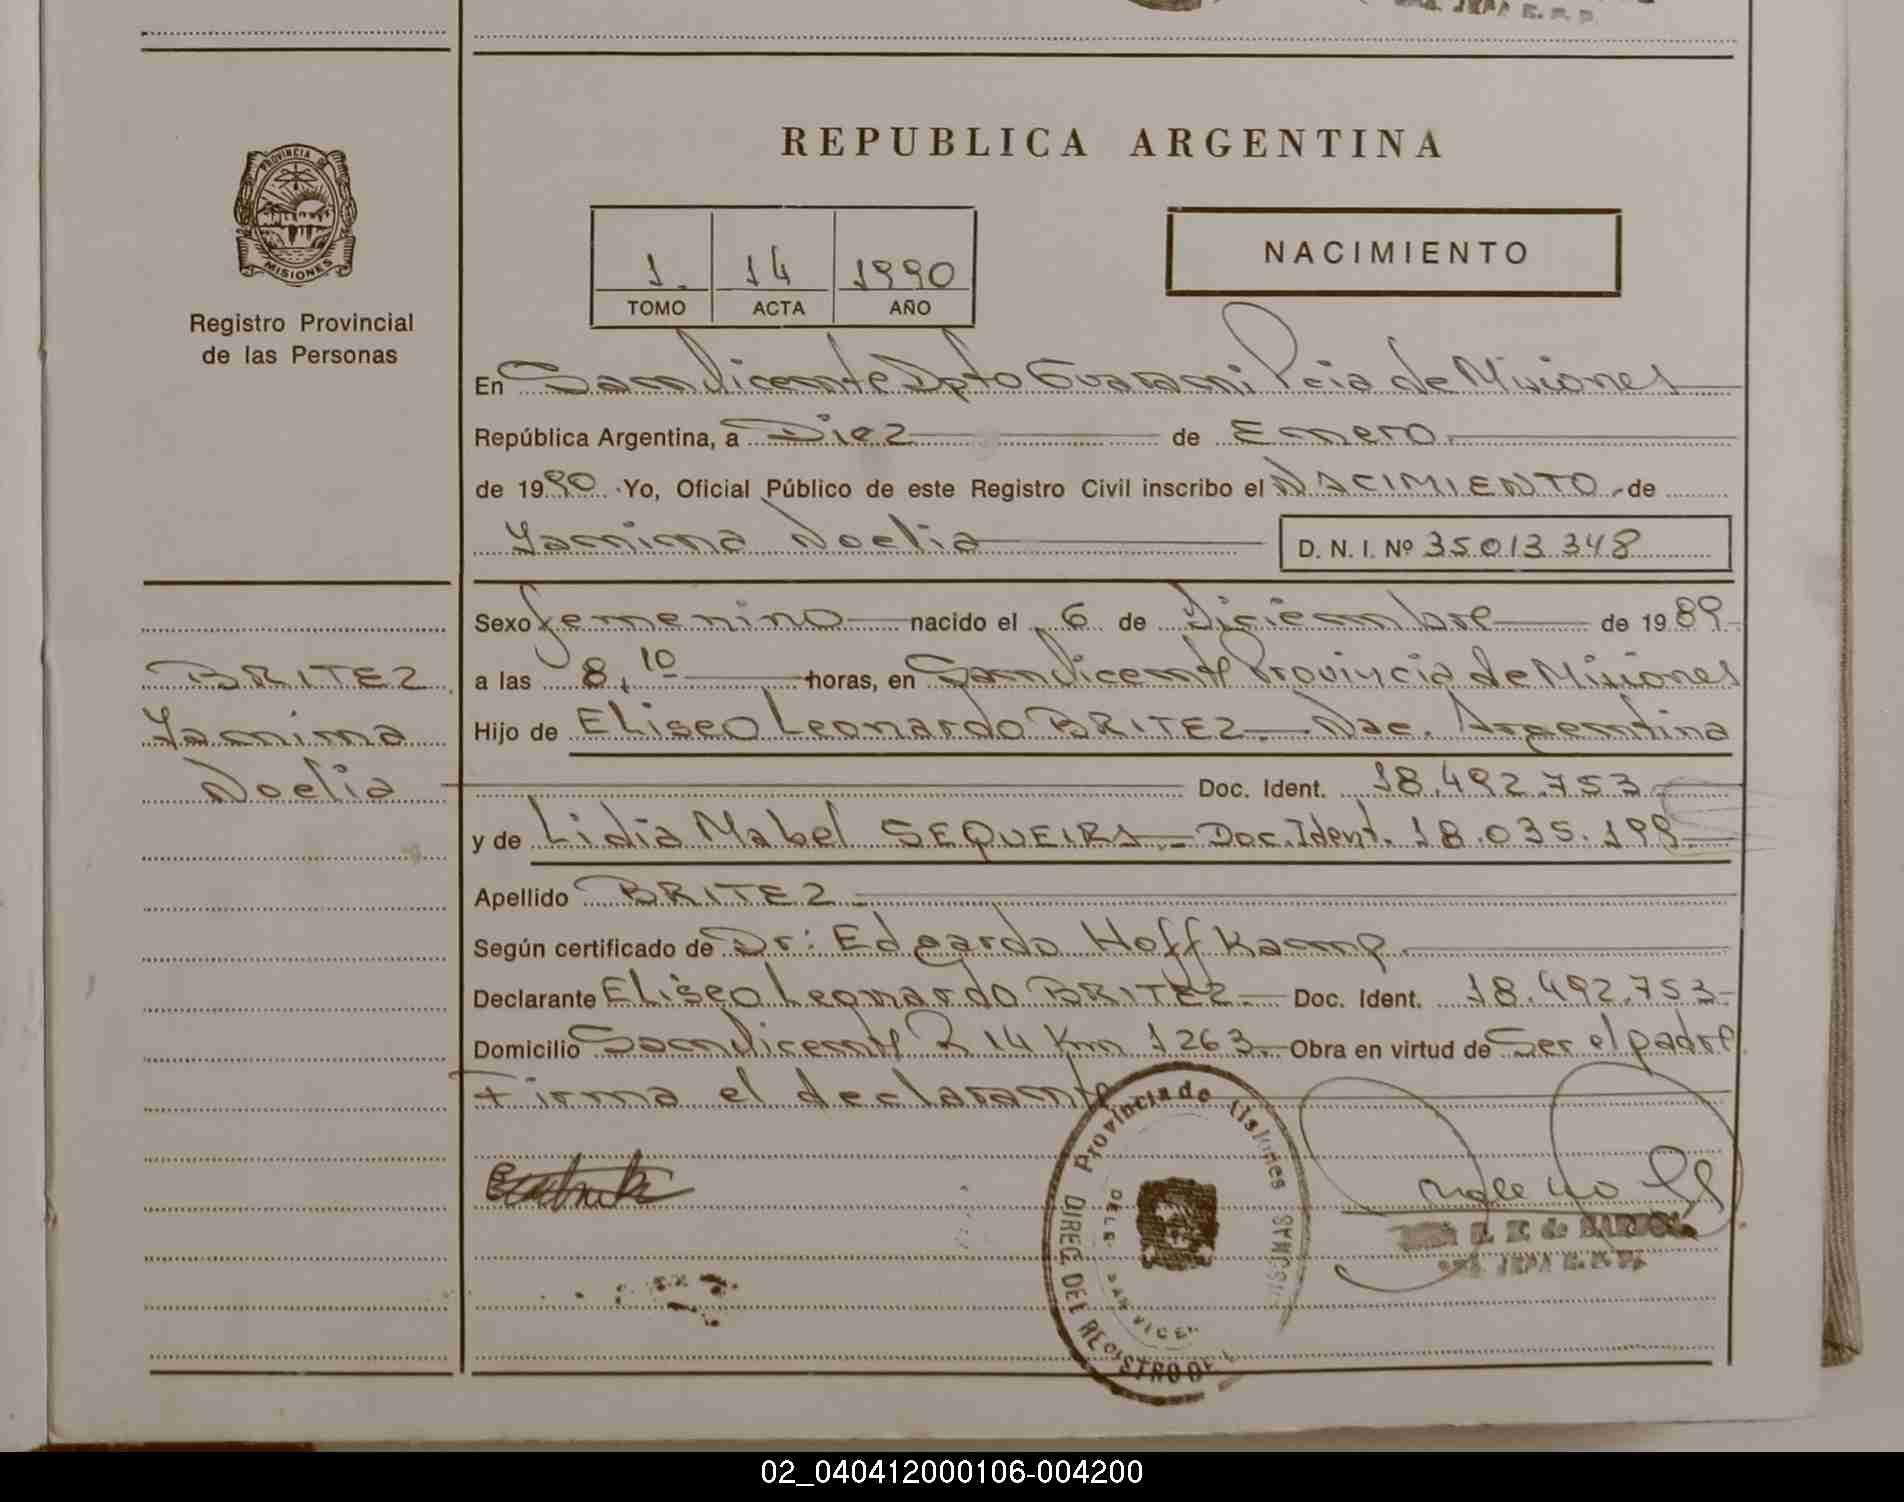 REPUBLICA ARGENTINA
PROVINCIA DE
MISIONES
Registro Provincial
de las Personas
1. 14 1990
TOMO ACTA AÑO
NACIMIENTO
En San Vicente Dpto Guarani Pcia de Misiones
República Argentina, a Diez de Enero
de 1990. Yo, Oficial Público de este Registro Civil inscribo el NACIMIENTO de
Yamima Noelia
D. N. I. Nº 35013348
BRITEZ
Yamima
Noelia
Sexo femenino nacido el 6 de Diciembre de 1989
a las 8,10 horas, en San Vicente Provincia de Misiones
Hijo de Eliseo Leonardo BRITEZ. Nac. Argentina
Doc. Ident. 18.492.753
y de Lidia Mabel SEQUEIRA - Doc. Ident. 18.035.199
Apellido BRITEZ
Según certificado de Dr: Edgardo Hoff Kamp
Declarante Eliseo Leonardo BRITEZ Doc. Ident. 18.492.753
Domicilio San Vicente R 14 Km 1263 Obra en virtud de Ser el padre
Firma el declarante
Provincia de Misiones
DIREC DEL REGISTRO DE
02_040412000106-004200